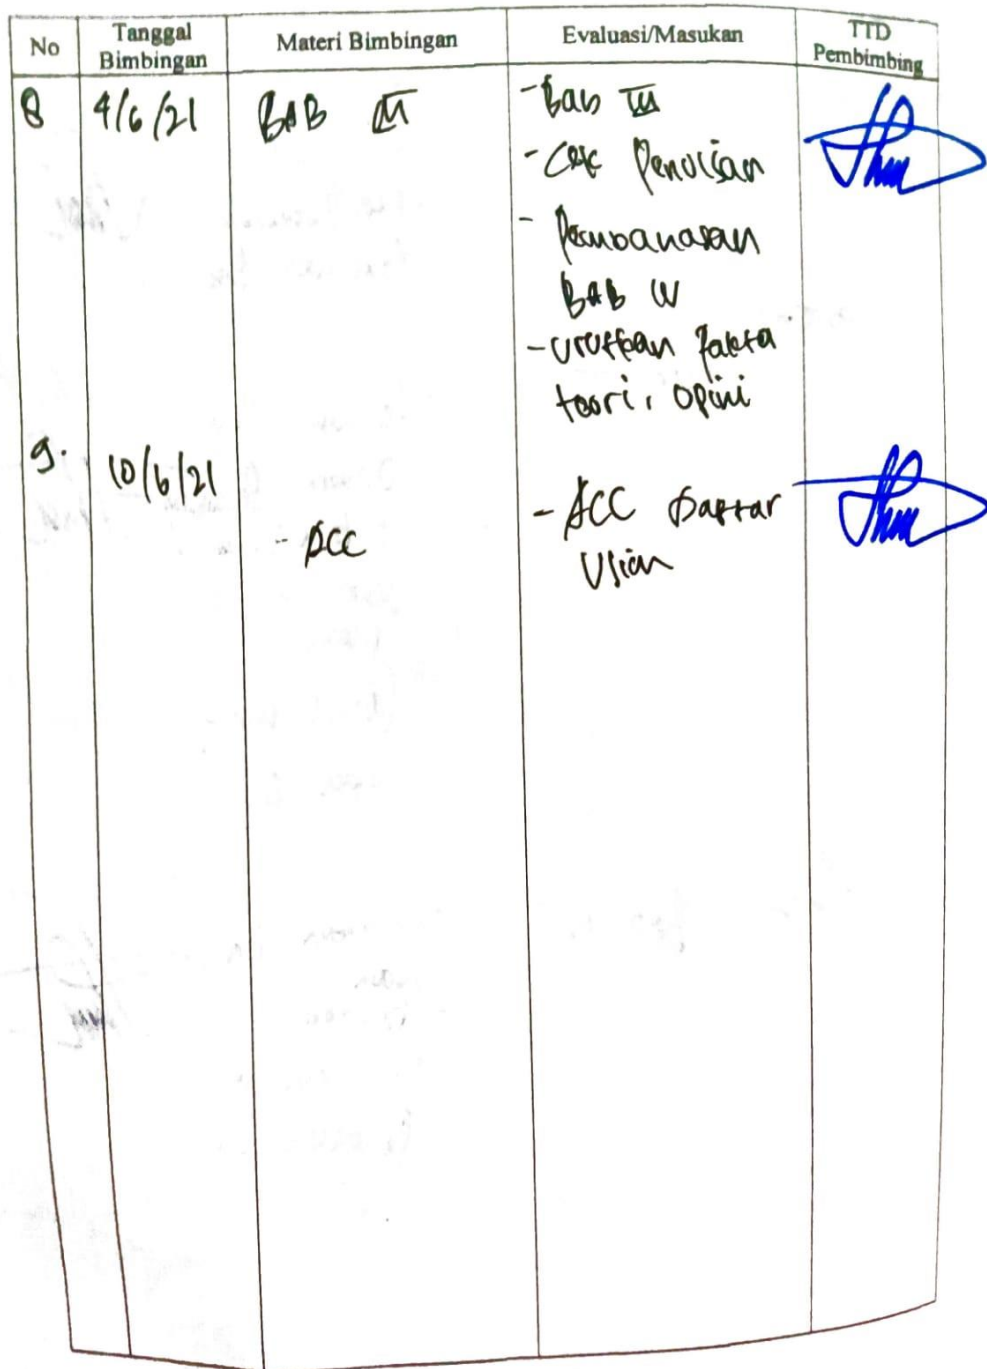 No Tanggal Bimbingan Materi Bimbingan Evaluasi/Masukan TTD Pembimbing
8 4/6/21 BAB III - Bab III
- Cek Penulisan
- Pembahasan
BAB IV
- Urutkan fakta
teori, opini
9. 10/6/21 - ACC - ACC Daftar
Ujian